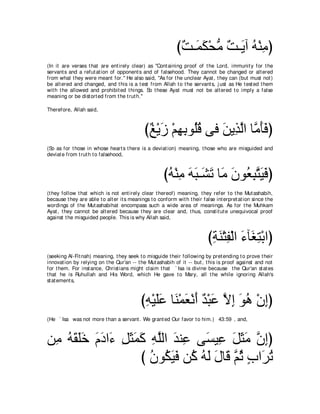 (مِنْهُ آيَـتٌ مُّحْكَمَـتٌ)
(In it are verses that are entirely clear) as "Containing proof of the Lord, immunity for the
servants and a refutation of opponents and of falsehood. They cannot be changed or altered
from what they were meant for." He also said, "As for the unclear Ayat, they can (but must not)
be altered and changed, and this is a test from Allah to the servants, just as He tested them
with the allowed and prohibited things. So these Ayat must not be altered to imply a false
meaning or be distorted from the truth."
Therefore, Allah said,
(فَأَمَّا الَّذِينَ فى قُلُوبِهِمْ زَيْغٌ)
(So as for those in whose hearts there is a deviation) meaning, those who are misguided and
deviate from truth to falsehood,
(فَيَتَّبِعُونَ مَا تَشَـبَهَ مِنْهُ)
(they follow that which is not entirely clear thereof) meaning, they refer to the Mutashabih,
because they are able to alter its meanings to conform with their false interpretation since the
wordings of the Mutashabihat encompass such a wide area of meanings. As for the Muhkam
Ayat, they cannot be altered because they are clear and, thus, constitute unequivocal proof
against the misguided people. This is why Allah said,
(ابْتِغَآءَ الْفِتْنَةِ)
(seeking Al-Fitnah) meaning, they seek to misguide their following by pretending to prove their
innovation by relying on the Qur'an -- the Mutashabih of it -- but, this is proof against and not
for them. For instance, Christians might claim that `Isa is divine because the Qur'an states
that he is Ruhullah and His Word, which He gave to Mary, all the while ignoring Allah's
statements,
(إِنْ هُوَ إِلاَّ عَبْدٌ أَنْعَمْنَا عَلَيْهِ)
(He `Isa was not more than a servant. We granted Our favor to him.) 43:59 , and,
(إِنَّ مَثَلَ عِيسَى عِندَ اللَّهِ كَمَثَلِ ءَادَمَ خَلَقَهُ مِن
تُرَابٍ ثُمَّ قَالَ لَهُ كُن فَيَكُونُ )